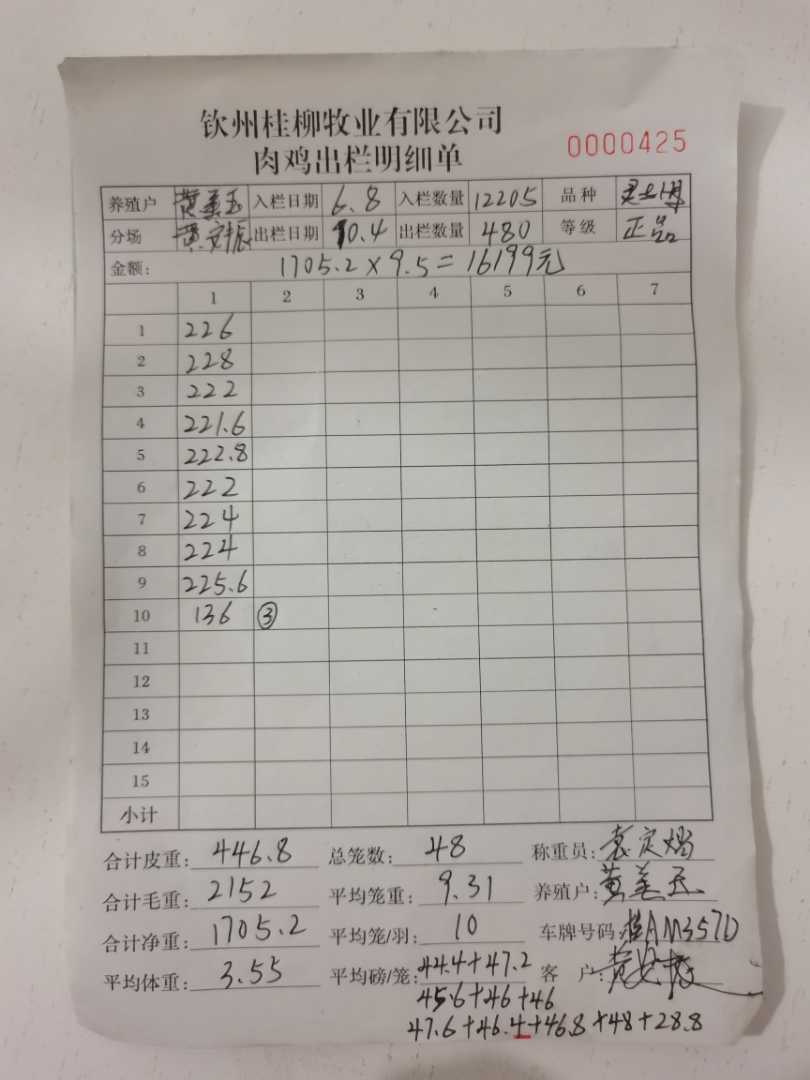 钦州桂柳牧业有限公司
肉鸡出栏明细单 0000425
养殖户 黄美玉 入栏日期 6.8 入栏数量 12205 品种
分场 出栏日期 10.4 出栏数量 480 等级 正品
金额: 1705.2×9.5=16199元
1 2 3 4 5 6 7
1 226
2 228
3 222
4 221.6
5 222.8
6 222
7 224
8 224
9 225.6
10 136 ③
11
12
13
14
15
小计
合计皮重: 446.8 总笼数: 48 称重员:
合计毛重: 2152 平均笼重: 9.31 养殖户: 黄美玉
合计净重: 1705.2 平均笼/羽: 10 车牌号码: 桂AM357D
平均体重: 3.55 平均磅/笼: 44.4+47.2 客 户:
45.6+46+46
47.6+46.4+46.8+48+28.8